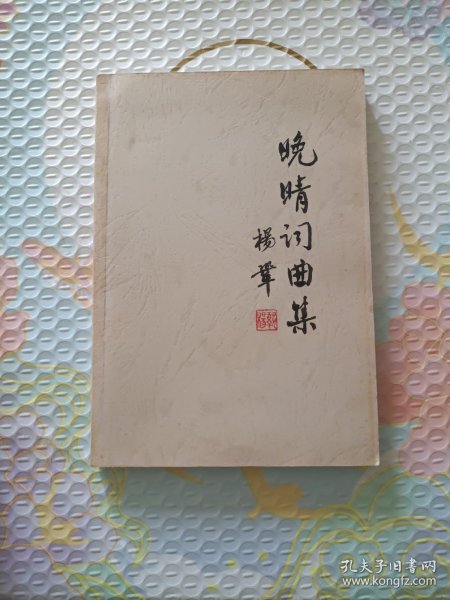 晚晴词曲集
杨巩
孔夫子旧书网
www.kongfz.com